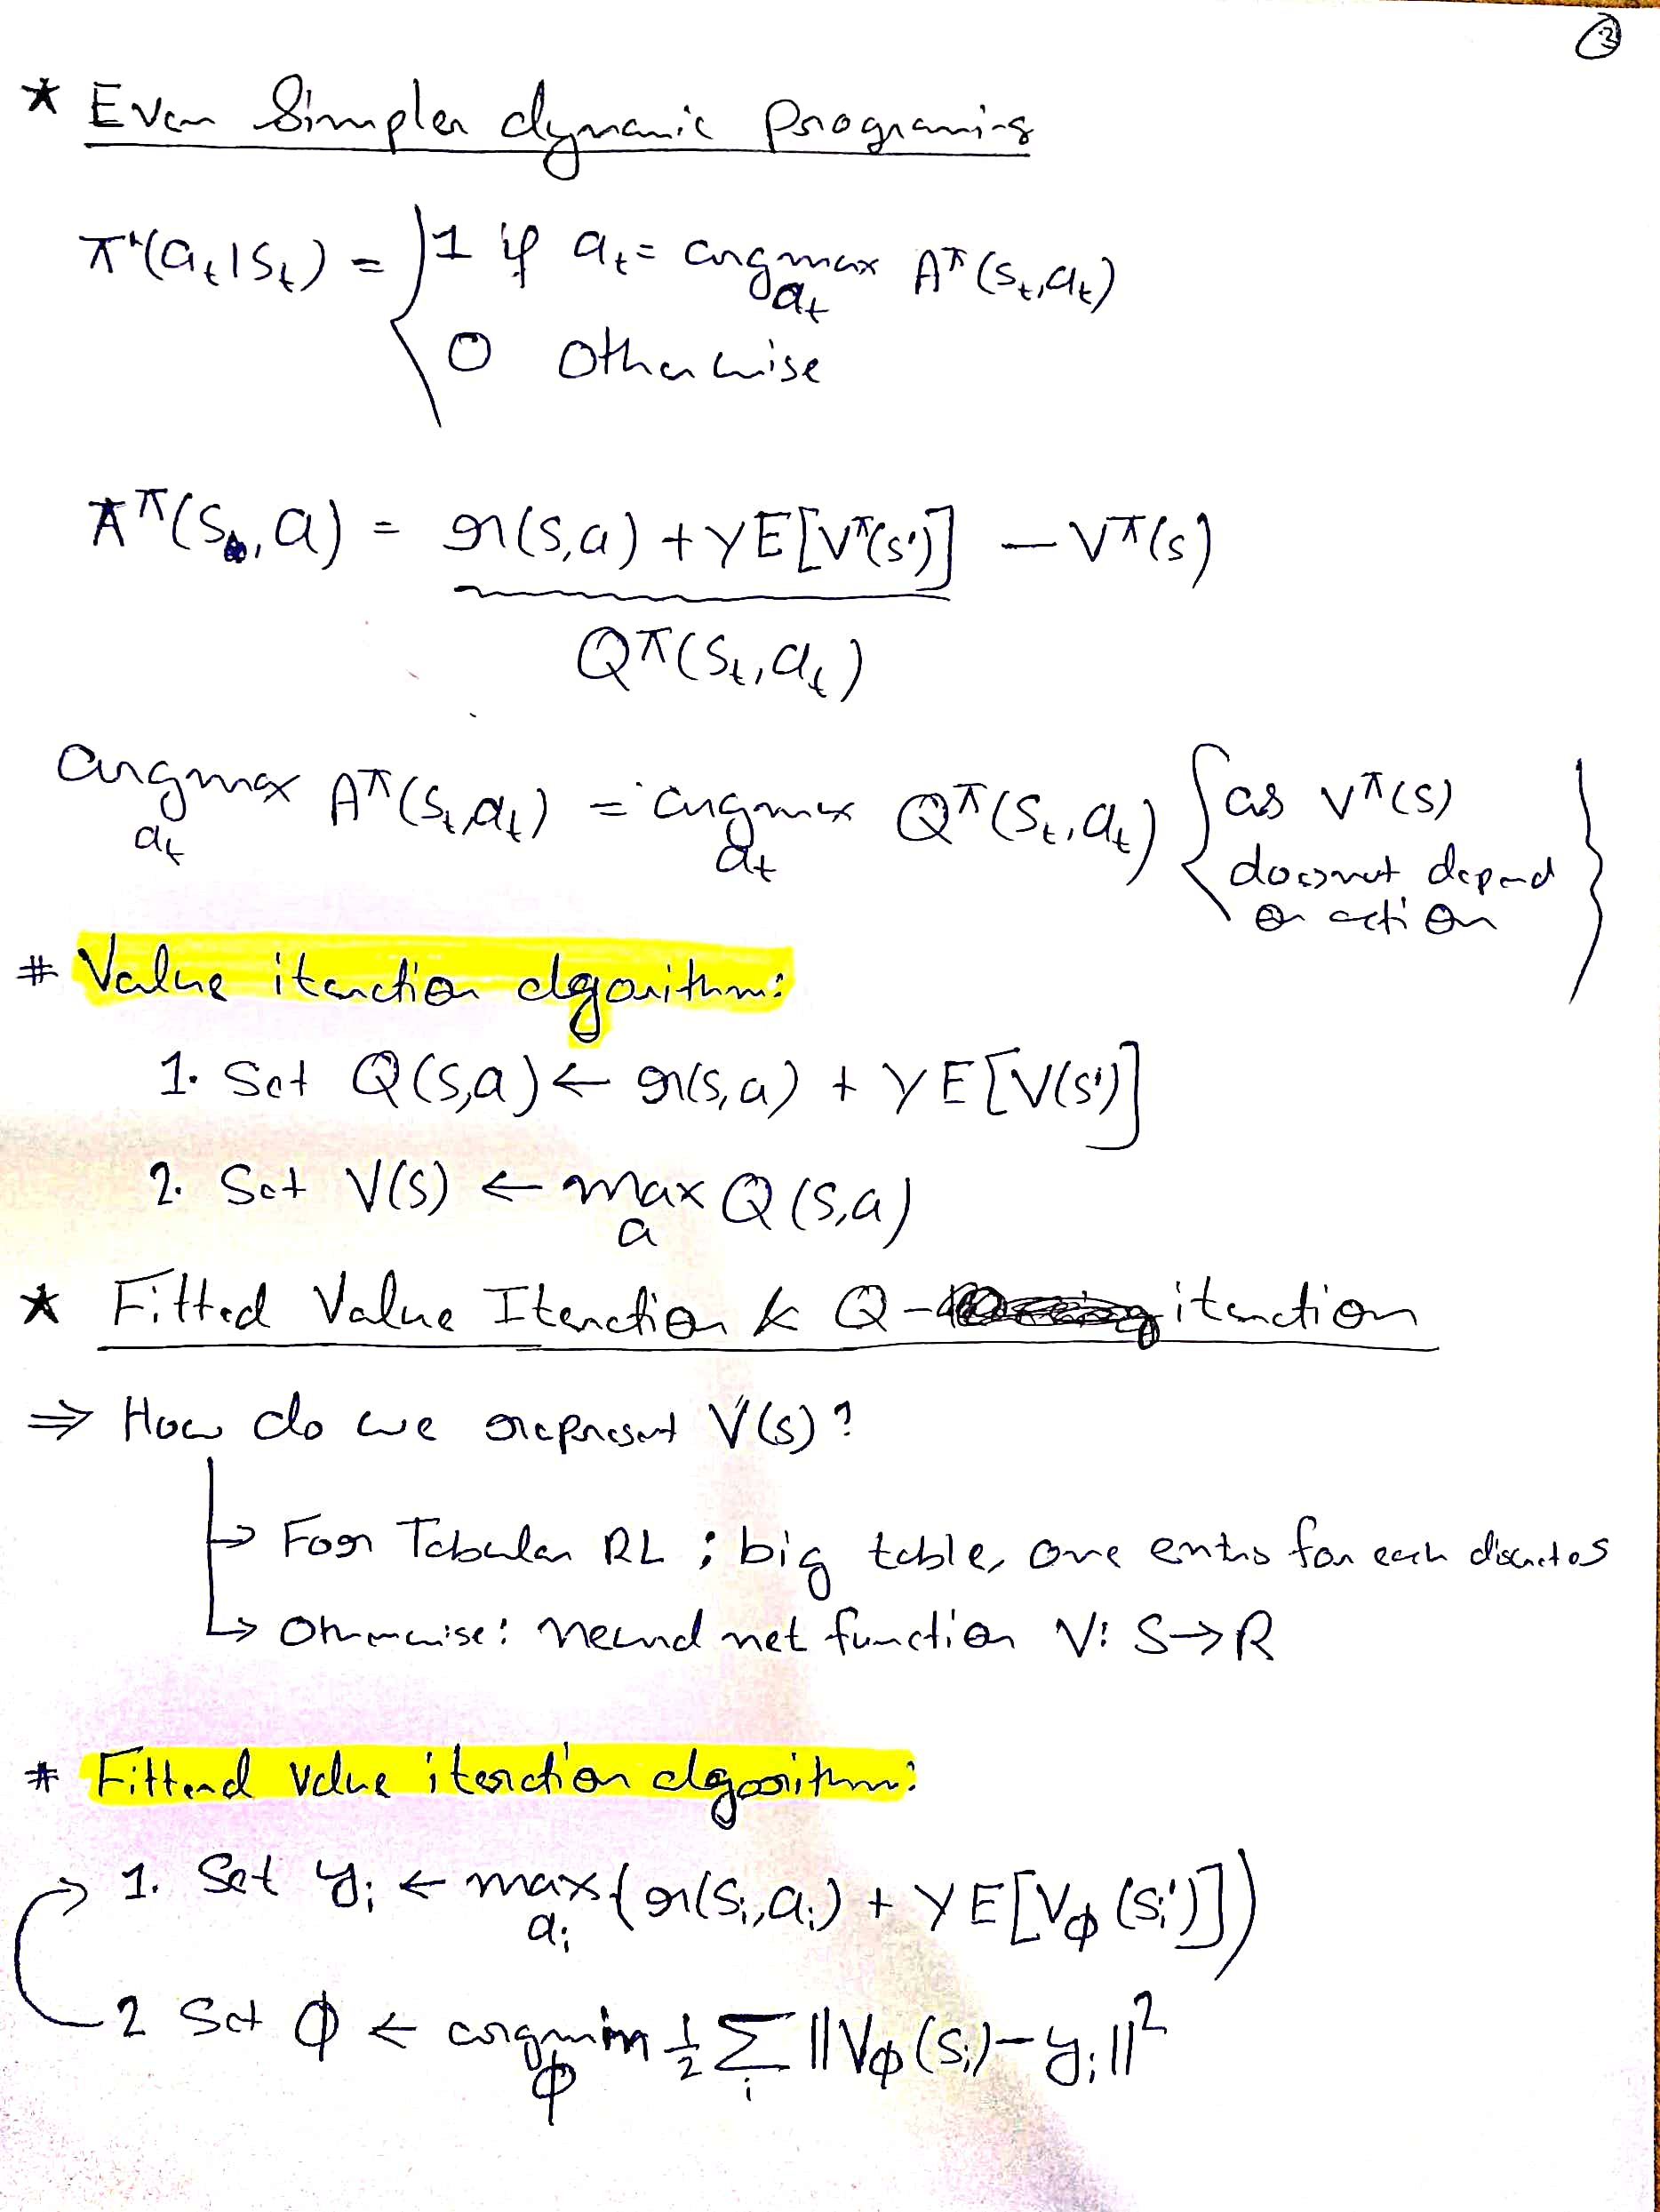 ③
* Even Simpler dynamic Programing
π*(a_t|s_t) = { 1 if a_t = argmax_{a_t} A^π(s_t, a_t)
0 Otherwise
A^π(s, a) = r(s,a) + γE[V^π(s')] − V^π(s)
Q^π(s_t, a_t)
argmax_{a_t} A^π(s_t, a_t) = argmax_{a_t} Q^π(s_t, a_t) { as V^π(s)
does not depend
on action }
# Value iteration algorithm:
1. Set Q(s,a) ← r(s,a) + γE[V(s')]
2. Set V(s) ← max_a Q(s,a)
* Fitted Value Iteration & Q- iteration
⇒ How do we represent V(s)?
↳ For Tabular RL ; big table, one entry for each discrete s
↳ Otherwise: neural net function V: S→R
# Fitted value iteration algorithm:
1. Set y_i ← max_{a_i} (r(s_i, a_i) + γE[V_φ(s_i')])
2 Set φ ← argmin_φ 1/2 Σ_i ||V_φ(s_i) − y_i||²